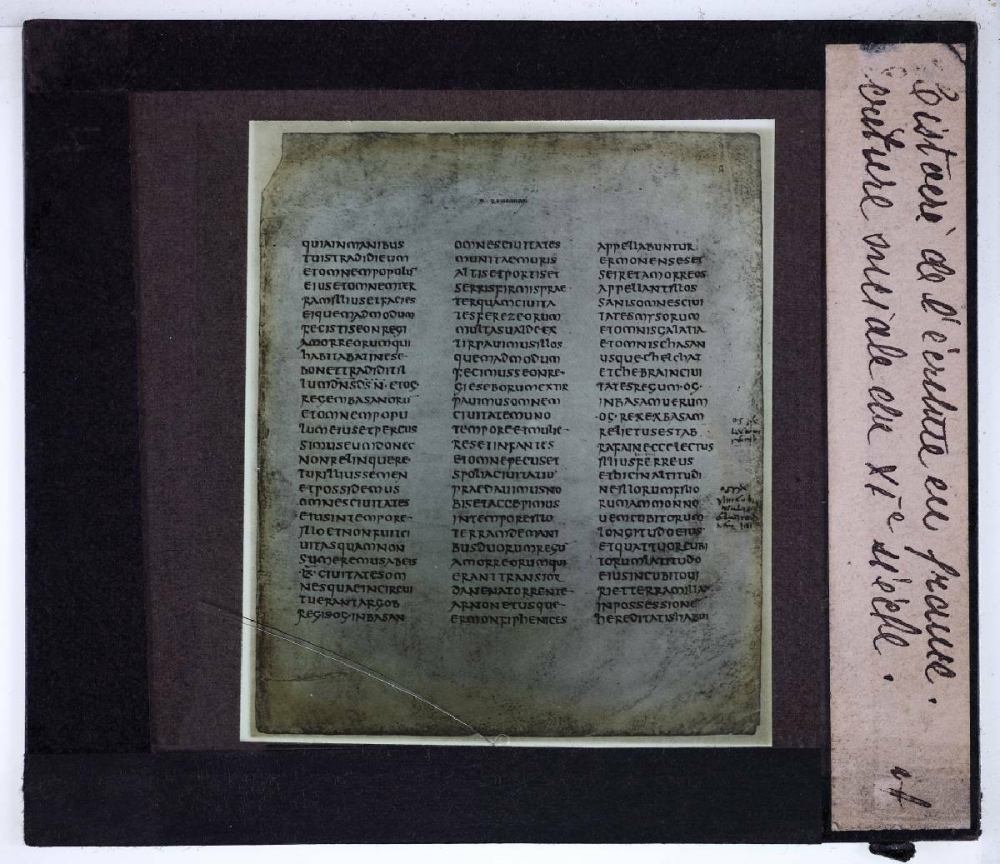 QUIAINMANIBUS
TUISTRADIDIEUM
ETOMNEMPOPULŪ
EIUSETOMNEMTER
RAMILLIUSETFACIES
EIQUEMADMODUM
FECISTISEONREGI
AMORREORUMQUI
HABITABATINESE
BONETTRADIDITIL
LUMD̄N̄S̄D̄S̄·N̄·ETOG·
REGEMBASANORŪ
ETOMNEMPOPU
LUMEIUSETPERCUS
SIMUSEUMDONEC
NONRELINQUERE
TURILLIUSSEMEN
ETPOSSIDEMUS
OMNESCIUITATES
EIUSINTEMPORE·
ILLOETNONFUITCI
UITASQUAMNON
SUMEREMUSABEIS
LX·CIUITATESOM
NESQUAEINCIRCU
TUERANTARGOB
REGISOGINBASAN
OMNESCIUITATES
MUNITAEMURIS
ALTISETPORTISET
SERRISFIRMISPRAE·
TERQUAMCIUITA
TESFEREZEORUM
MULTASUALDEEX
TIRPAUIMUSILLOS
QUEMADMODUM
FECIMUSSEONRE·
GIESEBORUMEXTIR
PAUIMUSOMNEM
CIUITATEMUNO
TEMPOREETMULIE·
RESETINFANTES
ETOMNEPECUSET
SPOLIACIUITATIŪ
PRAEDAUIMUSNO
BISETACCEPIMUS
INTEMPOREILLO
TERRAMDEMANI
BUSDUORUMREGŪ
AMORREORUMQUI
ERANTTRANSIOR
DANENATORRENTE·
ARNONETUSQUE·
ERMONFIPHENICES
APPELLABUNTUR
ERMONENSESET
SEIRETAMORREOS
APPELLANTILLOS
SANISOMNESCIUI
TATESMYSORUM
ETOMNISGALATIA
ETOMNISCHASAN
USQUE·CHELCHAT
ETCHEBRAINCIUI
TATESREGUM·OG·
INBASAMUERUM
·OG·REXEXBASAM
RELICTUSESTAB
RAFAINECCELECTUS
ILLIUSFERREUS
ETHICINALTITUDI
NEFILIORUMFILIO
RUMAMMONNO
UEMCUBITORUM
LONGITUDOEIUS
ETQUATTUORCUBI
TORUMLATITUDO
EIUSINCUBITOUI
RIETTERRAMILLĀ
INPOSSESSIONE
HEREDITATISHABUI
Histoire de l'écriture en france.
criture onciale du XIe siècle.